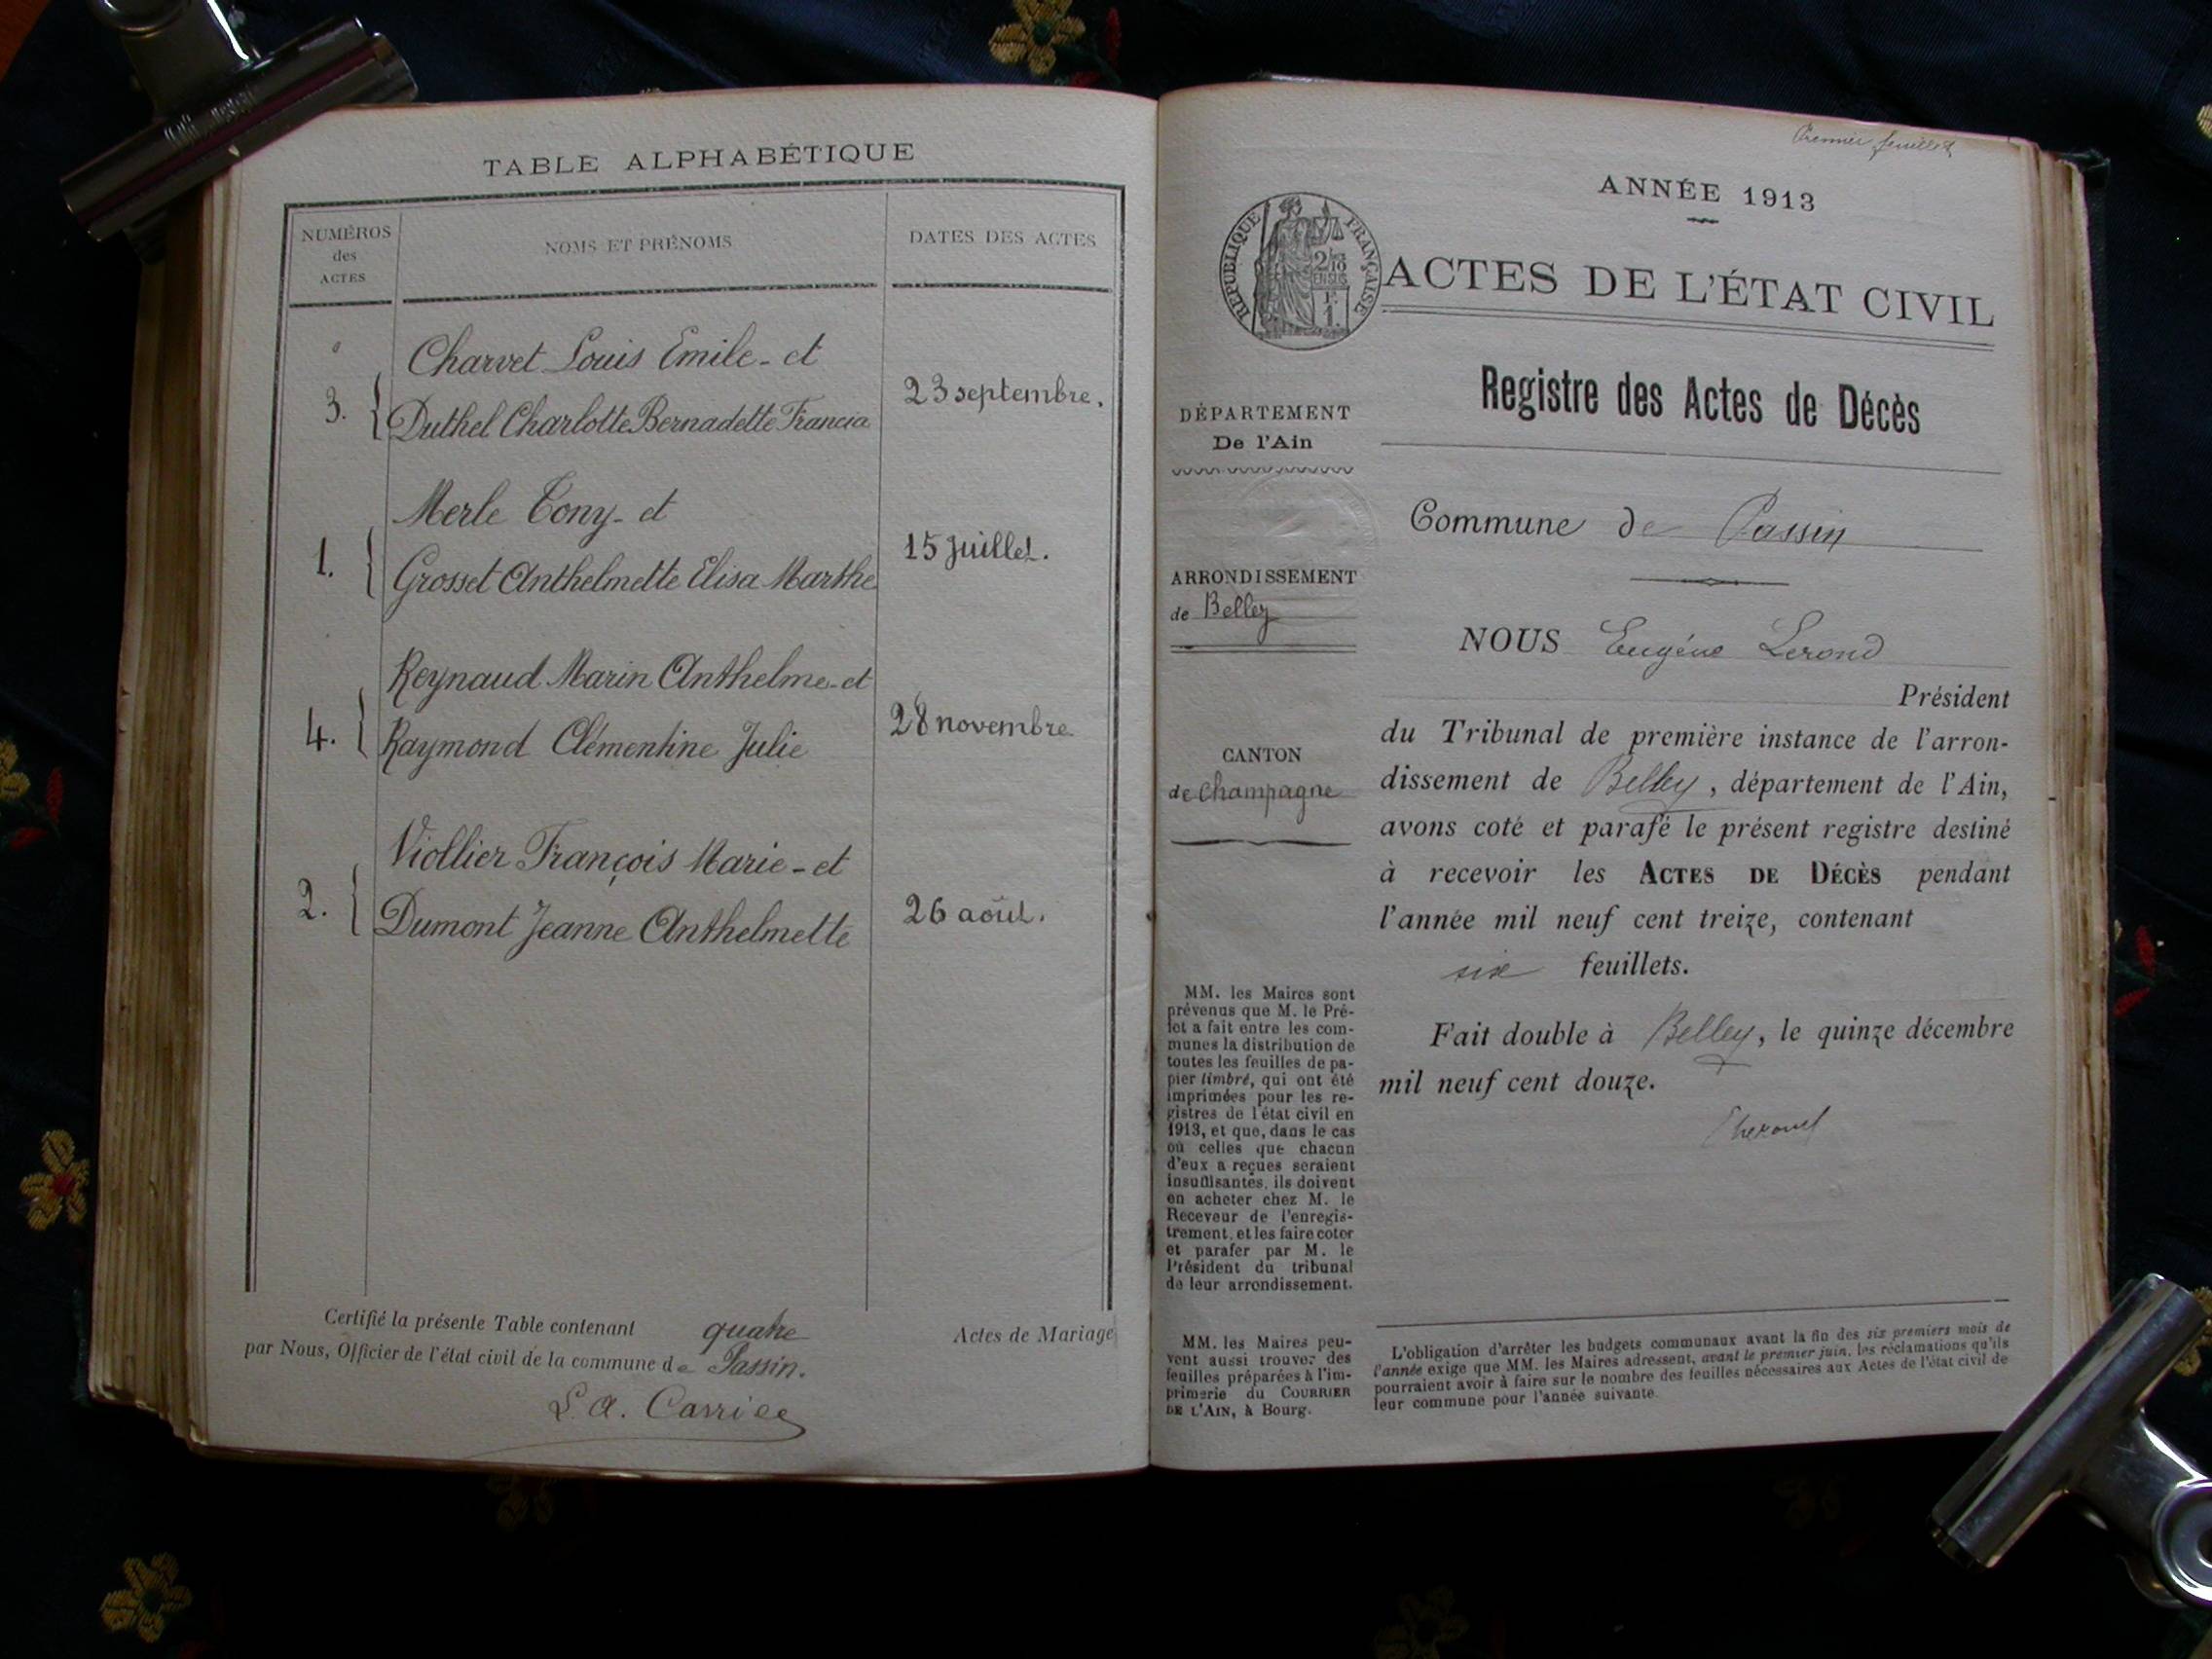 TABLE ALPHABÉTIQUE
NUMÉROS
des
ACTES
NOMS ET PRÉNOMS
DATES DES ACTES
Charvet Louis Emile - et
3. { Duthel Charlotte Bernadette Francia
23 septembre.
Merle Tony - et
1. { Grosset Anthelmette Elisa Marthe
15 Juillet.
Reynaud Marin Anthelme - et
4. { Raymond Clémentine Julie
28 novembre.
Viollier François Marie - et
2. { Dumont Jeanne Anthelmette
26 août.
Certifié la présente Table contenant quatre Actes de Mariage
par Nous, Officier de l'état civil de la commune de Passin.
Premier feuillet
ANNÉE 1913
RÉPUBLIQUE FRANÇAISE
2/10
EN SUS
1 F.
ACTES DE L'ÉTAT CIVIL
Registre des Actes de Décès
DÉPARTEMENT
De l'Ain
ARRONDISSEMENT
de Belley
CANTON
de Champagne
MM. les Maires sont
prévenus que M. le Pré-
fet a fait entre les com-
munes la distribution de
toutes les feuilles de pa-
pier timbré, qui ont été
imprimées pour les re-
gistres de l'état civil en
1913, et que, dans le cas
où celles que chacun
d'eux a reçues seraient
insuffisantes, ils doivent
en acheter chez M. le
Receveur de l'enregis-
trement, et les faire coter
et parafer par M. le
Président du tribunal
de leur arrondissement.
MM. les Maires peu-
vent aussi trouver des
feuilles préparées à l'im-
primerie du COURRIER
DE L'AIN, à Bourg.
Commune de Passin
NOUS Eugène Lerond
Président
du Tribunal de première instance de l'arron-
dissement de Belley, département de l'Ain,
avons coté et parafé le présent registre destiné
à recevoir les ACTES DE DÉCÈS pendant
l'année mil neuf cent treize, contenant
six feuillets.
Fait double à Belley, le quinze décembre
mil neuf cent douze.
L'obligation d'arrêter les budgets communaux avant la fin des six premiers mois de
l'année exige que MM. les Maires adressent, avant le premier juin, les réclamations qu'ils
pourraient avoir à faire sur le nombre des feuilles nécessaires aux Actes de l'état civil de
leur commune pour l'année suivante.